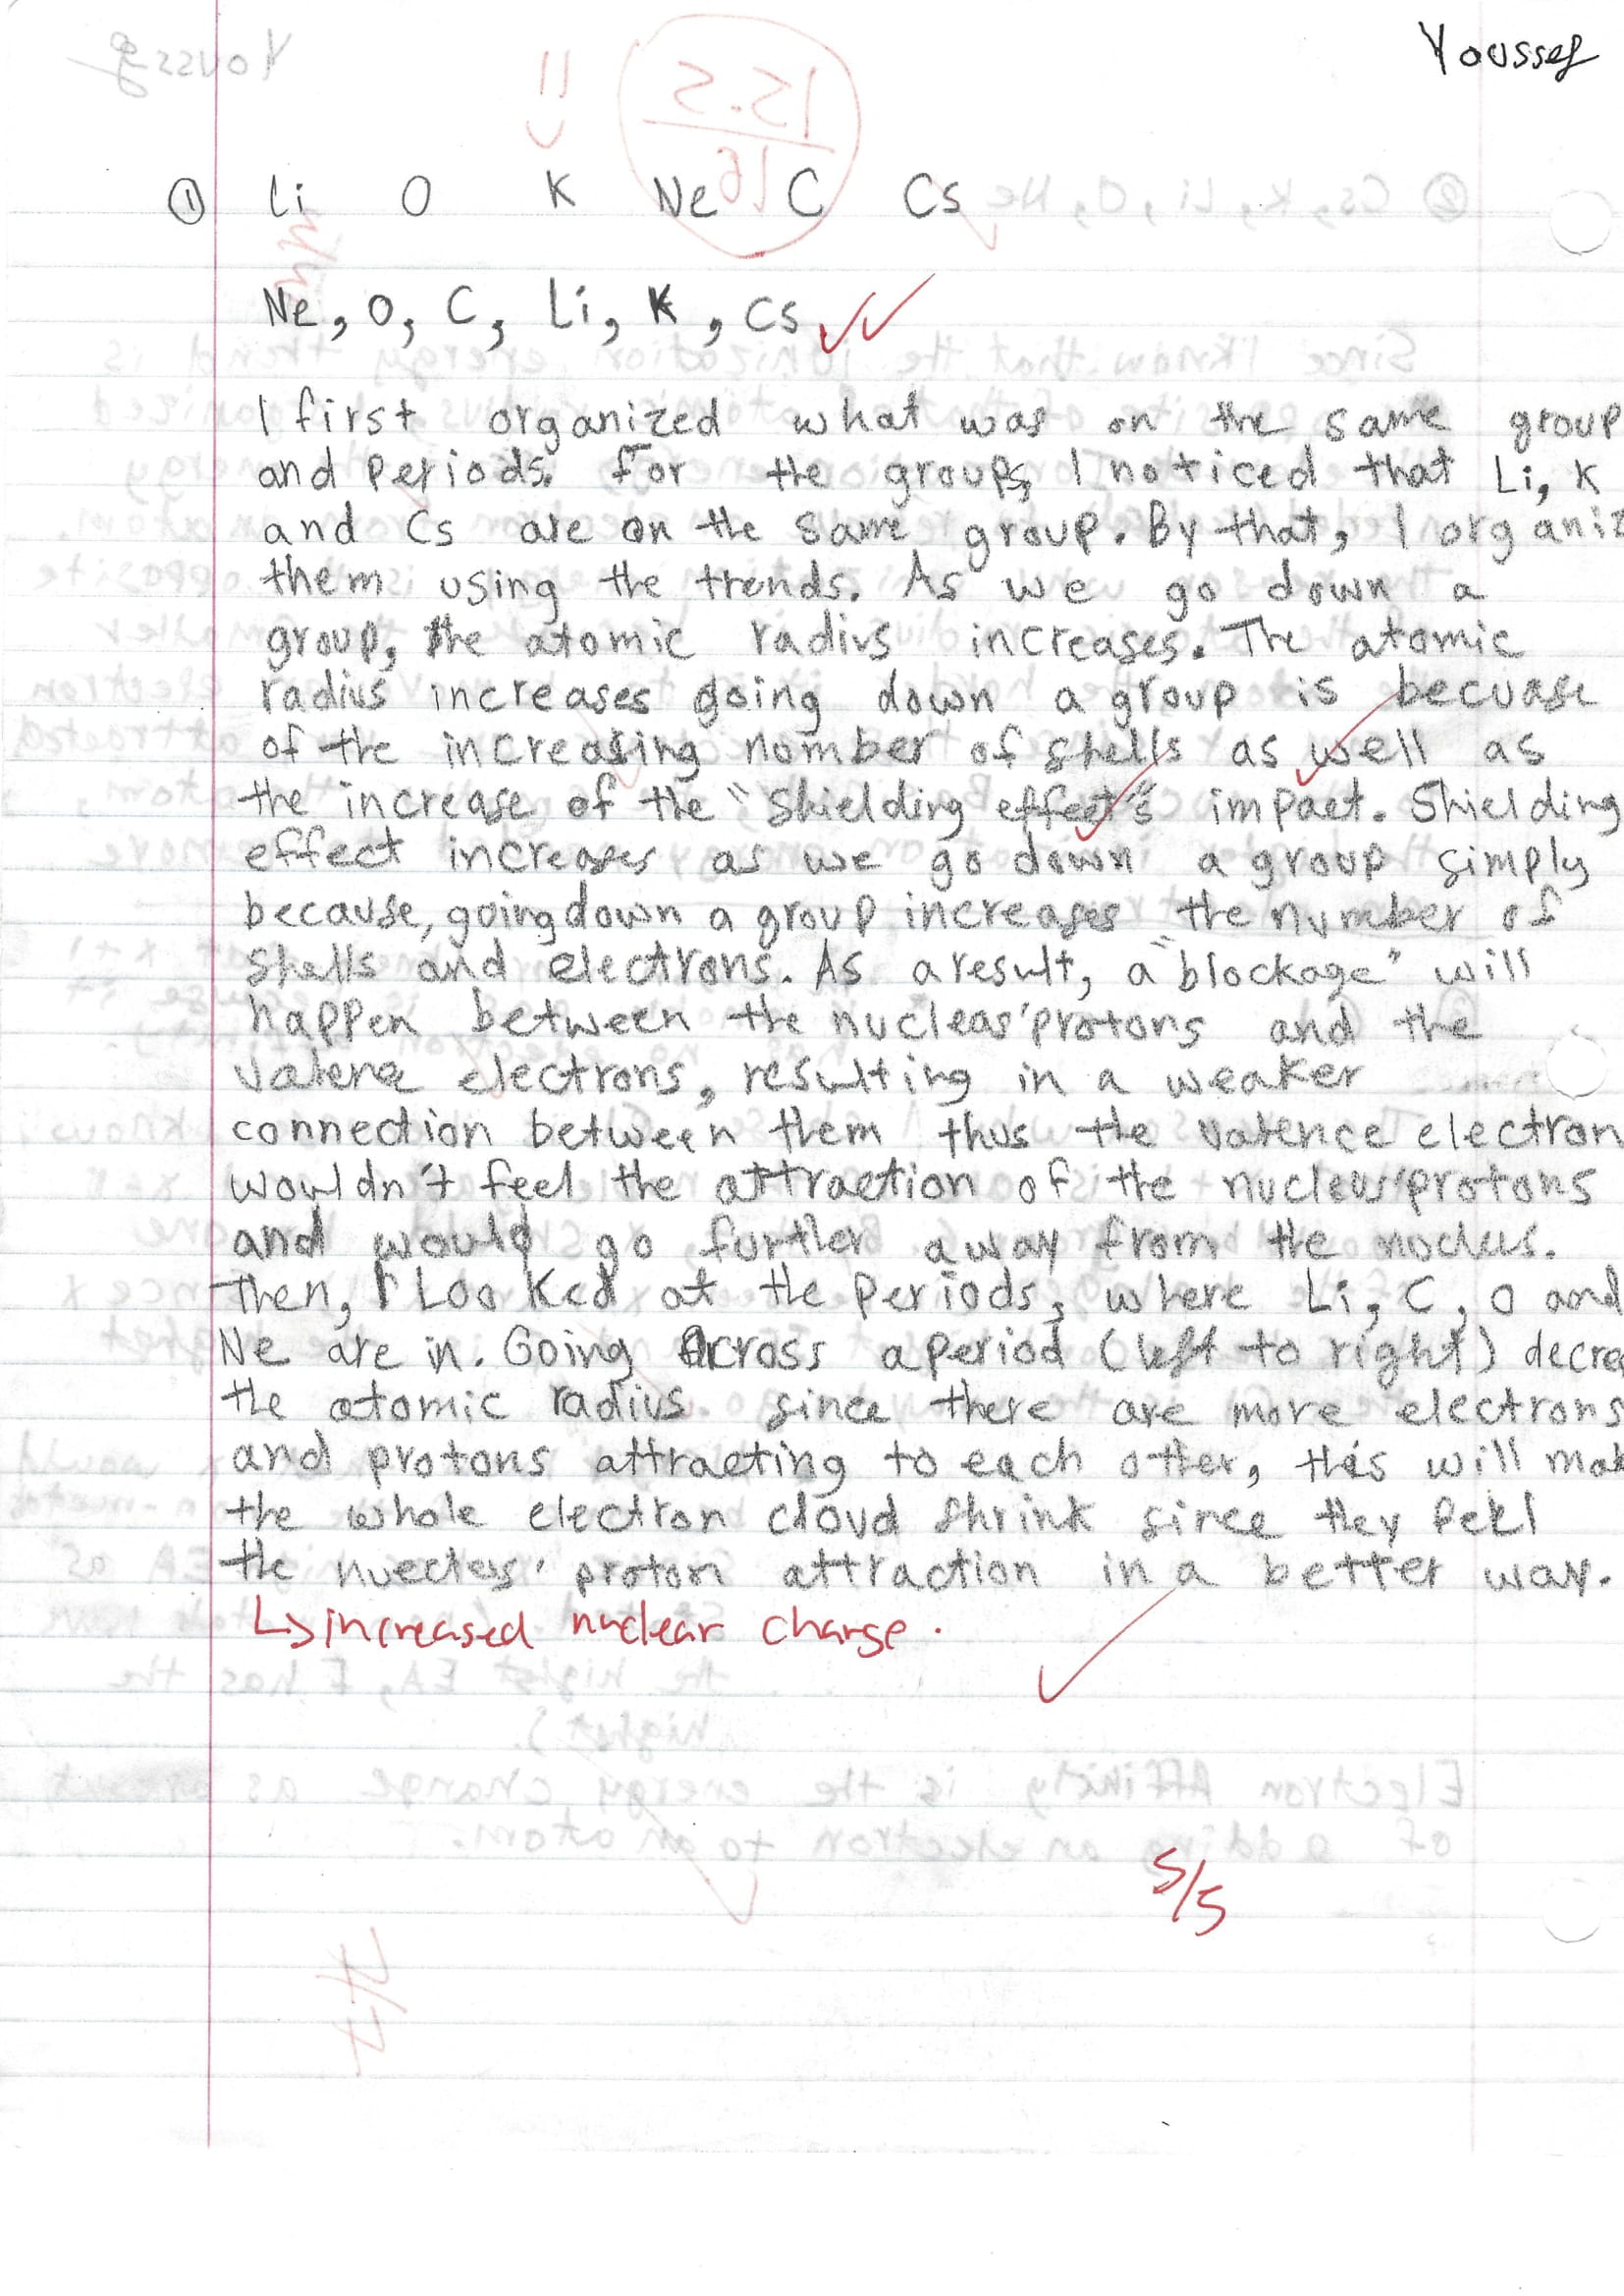 Youssef
① Li O K Ne C Cs
Ne, O, C, Li, K, Cs
I first organized what was on the same group
and periods. For the groups, I noticed that Li, K
and Cs are on the same group. By that, I organiz
them using the trends. As we go down a
group, the atomic radius increases. The atomic
radius increases going down a group is becuase
of the increasing number of shells as well as
the increase of the "shielding effect"'s impact. Shielding
effect increases as we go down a group simply
because, going down a group increases the number of
shells and electrons. As a result, a "blockage" will
happen between the nucleas' protons and the
valence electrons, resulting in a weaker
connection between them thus the valence electron
wouldn't feel the attraction of the nucleus' protons
and would go further away from the nucleus.
Then, I Looked at the periods, where Li, C, O and
Ne are in. Going Across a period (left to right) decrea
the atomic radius since there are more electrons
and protons attracting to each other, this will mak
the whole electron cloud shrink since they feel
the nuecleus' proton attraction in a better way.
↳ increased nuclear charge.
5/5